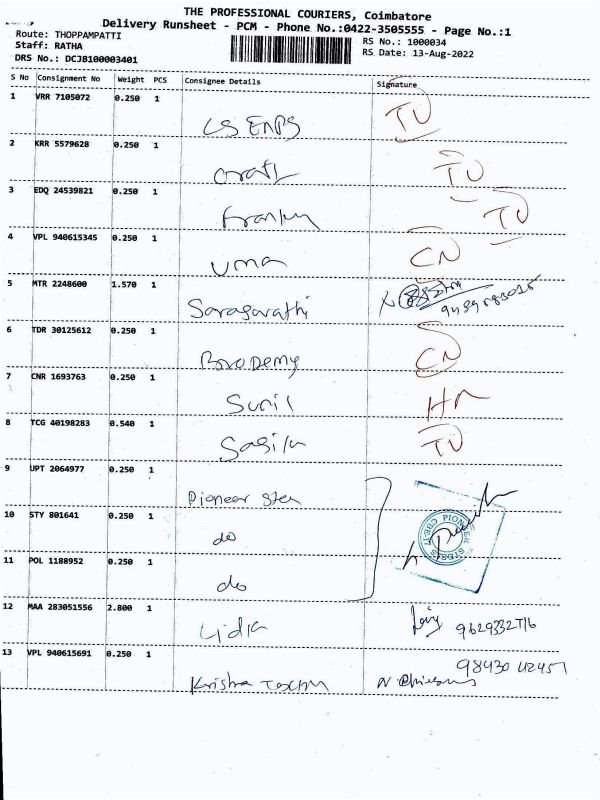 THE PROFESSIONAL COURIERS, Coimbatore
Delivery Runsheet - PCM - Phone No.:0422-3505555 - Page No.:1
Route: THOPPAMPATTI
Staff: RATHA
DRS No.: DCJB100003401
RS No.: 1000034
RS Date: 13-Aug-2022
S No Consignment No Weight PCS Consignee Details Signature
1 VRR 7105072 0.250 1 TU
2 KRR 5579628 0.250 1 TU
3 EDQ 24539821 0.250 1 TU
4 VPL 940615345 0.250 1 Uma CN
5 MTR 2248600 1.570 1
6 TDR 30125612 0.250 1 CN
7 CNR 1693763 0.250 1 Sunil
8 TCG 40198283 0.540 1 TU
9 UPT 2064977 0.250 1 Pioneer
10 STY 801641 0.250 1 do
11 POL 1188952 0.250 1 do
12 MAA 283051556 2.800 1 Lidia
13 VPL 940615691 0.250 1 Krishna